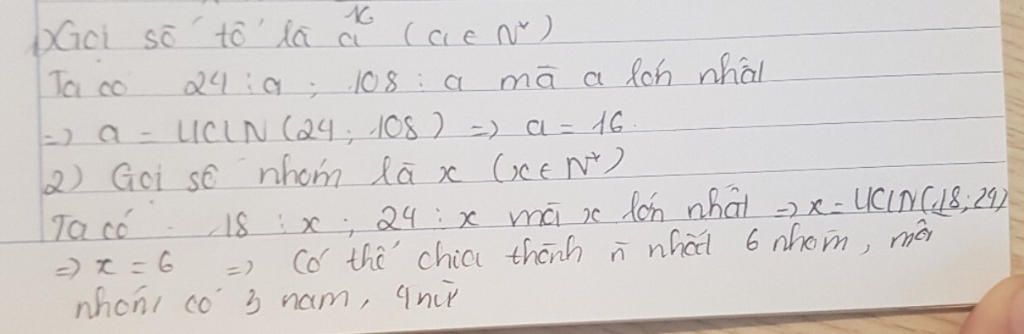 1) Gọi số tổ là a (a ∈ N*)
16
Ta có 24 ⋮ a ; 108 ⋮ a mà a lớn nhất
=> a = ƯCLN(24; 108) => a = 16.
2) Gọi số nhóm là x (x ∈ N*)
Ta có 18 ⋮ x ; 24 ⋮ x mà x lớn nhất => x = ƯCLN(18; 24)
=> x = 6 => Có thể chia thành ñ nhất 6 nhóm, mỗi
nhóm có 3 nam, 4 nữ